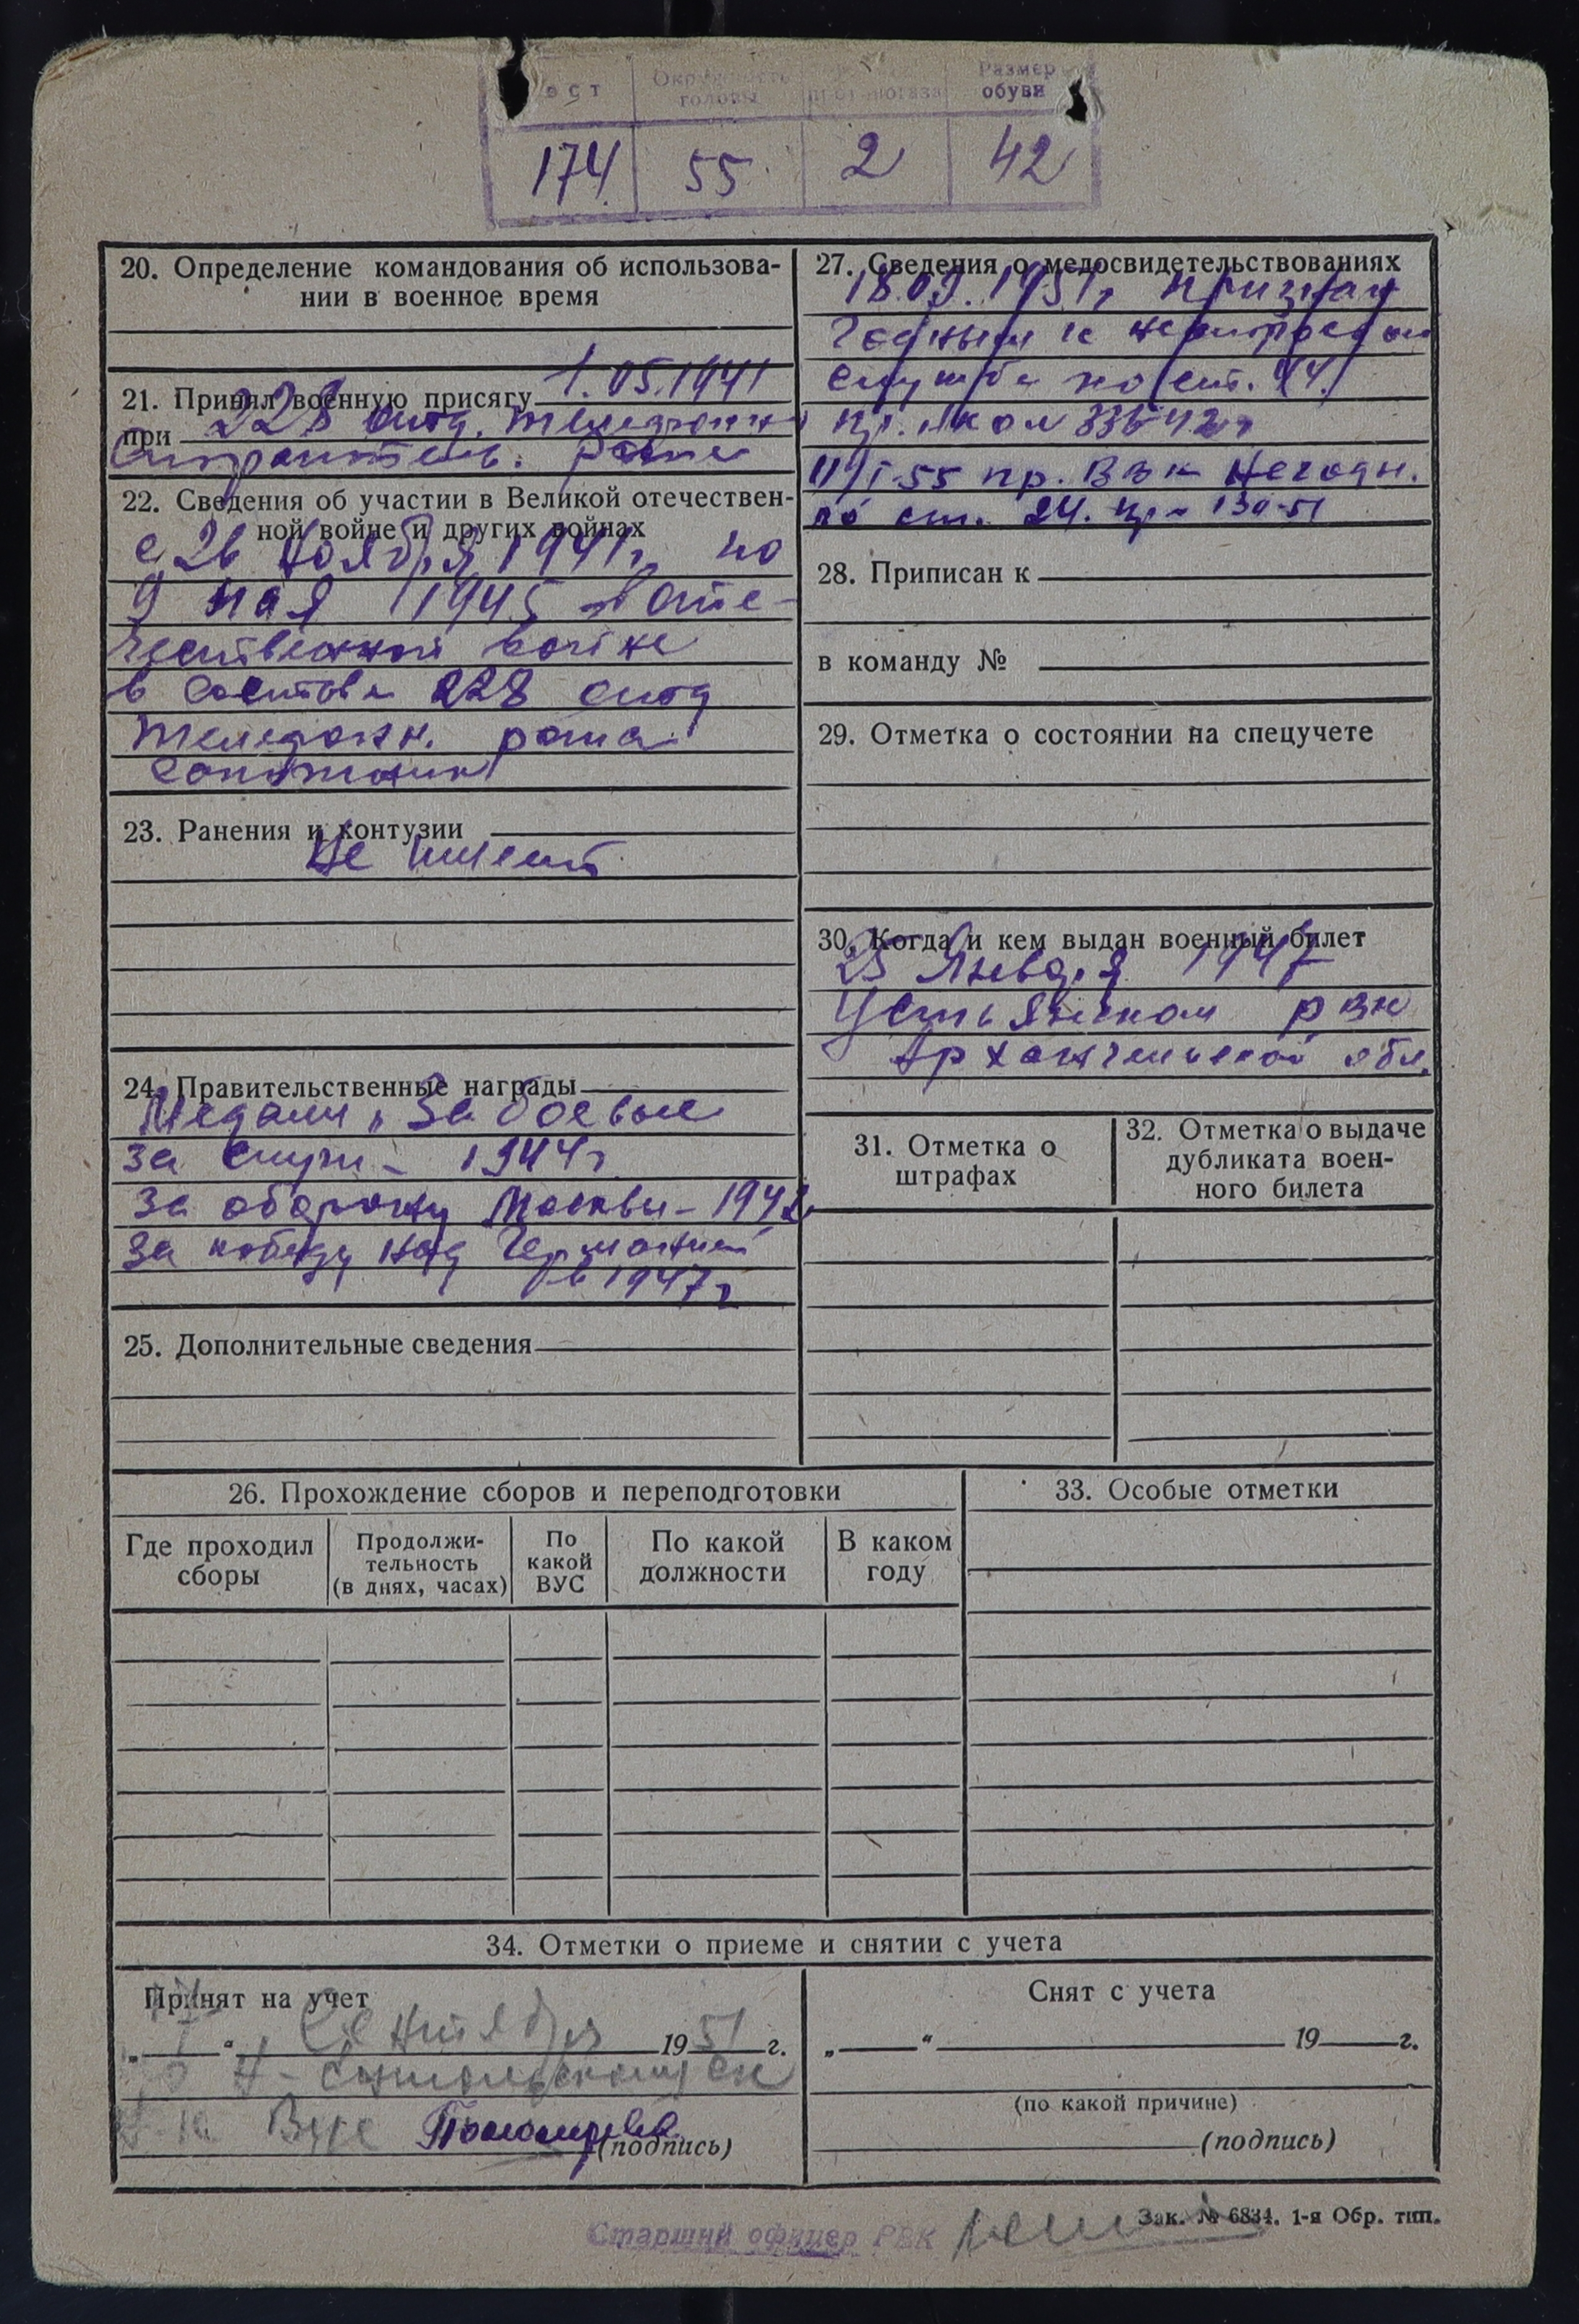 Рост Окружность головы противогаза Размер обуви
174 55 2 42
20. Определение командования об использова-
нии в военное время
21. Принял военную присягу 1.05.1941
при 228 отд. телефонн.
Строитель. рота
22. Сведения об участии в Великой отечествен-
ной войне и других войнах
с 26 ноября 1941г по
9 мая 1945 в Оте-
чественной войне
в составе 228 отд
телефонн. рота
23. Ранения и контузии
Не имеет
24. Правительственные награды
Медали „За боевые
за служ- 1944г
За оборону Москвы - 1942
За победу над Германией
в 1947г
25. Дополнительные сведения
27. Сведения о медосвидетельствованиях
18.09.1951г признан
годным к нестроевой
службе по ст. 44
пр. НКО № 336-42г
11/I-55 пр. ВВК Негодн.
по ст. 24. пр- 130-51
28. Приписан к
в команду №
29. Отметка о состоянии на спецучете
30. Когда и кем выдан военный билет
25 Января 1947
Устьянском РВК
Архангельской обл.
31. Отметка о
штрафах
32. Отметка о выдаче
дубликата воен-
ного билета
26. Прохождение сборов и переподготовки
Где проходил
сборы
Продолжи-
тельность
(в днях, часах)
По
какой
ВУС
По какой
должности
В каком
году
33. Особые отметки
34. Отметки о приеме и снятии с учета
Принят на учет
„ “ Сентября 1951 г.
ВУС (подпись)
Снят с учета
„ “ 19 г.
(по какой причине)
(подпись)
Зак. № 6834. 1-я Обр. тип.
Старший офицер РВК